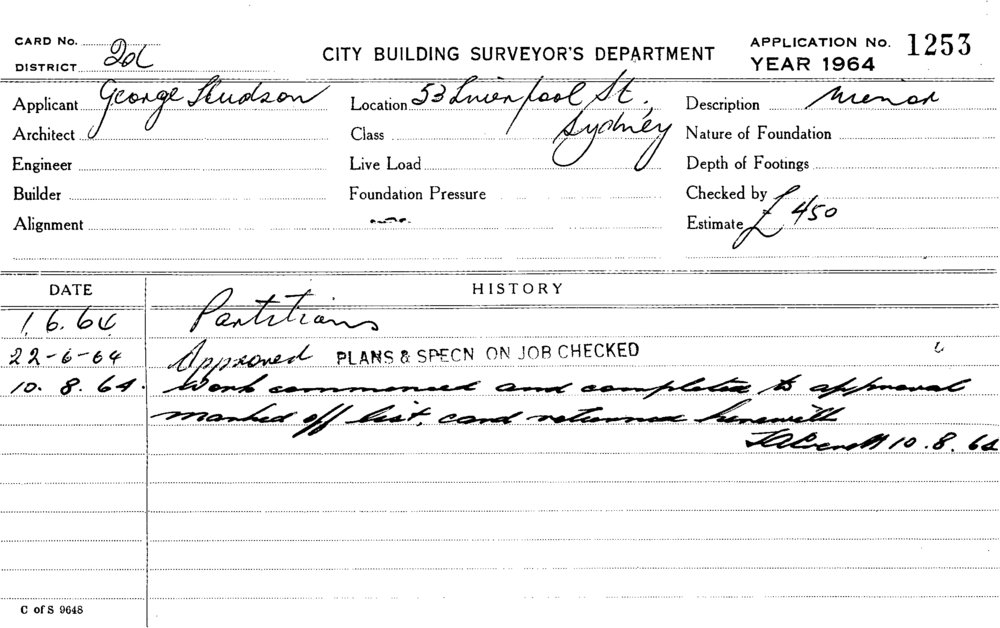 CARD No. CITY BUILDING SURVEYOR'S DEPARTMENT APPLICATION No. 1253
DISTRICT YEAR 1964
Applicant George Hudson Location 53 Liverpool St, Description Minor
Architect Class Sydney Nature of Foundation
Engineer Live Load Depth of Footings
Builder Foundation Pressure Checked by
Alignment Estimate £450
DATE HISTORY
1.6.64 Partitions
22-6-64 Approved PLANS & SPECN ON JOB CHECKED
10.8.64. Work commenced and completed to approval
marked off list, card returned herewith
10.8.64
C of S 9648